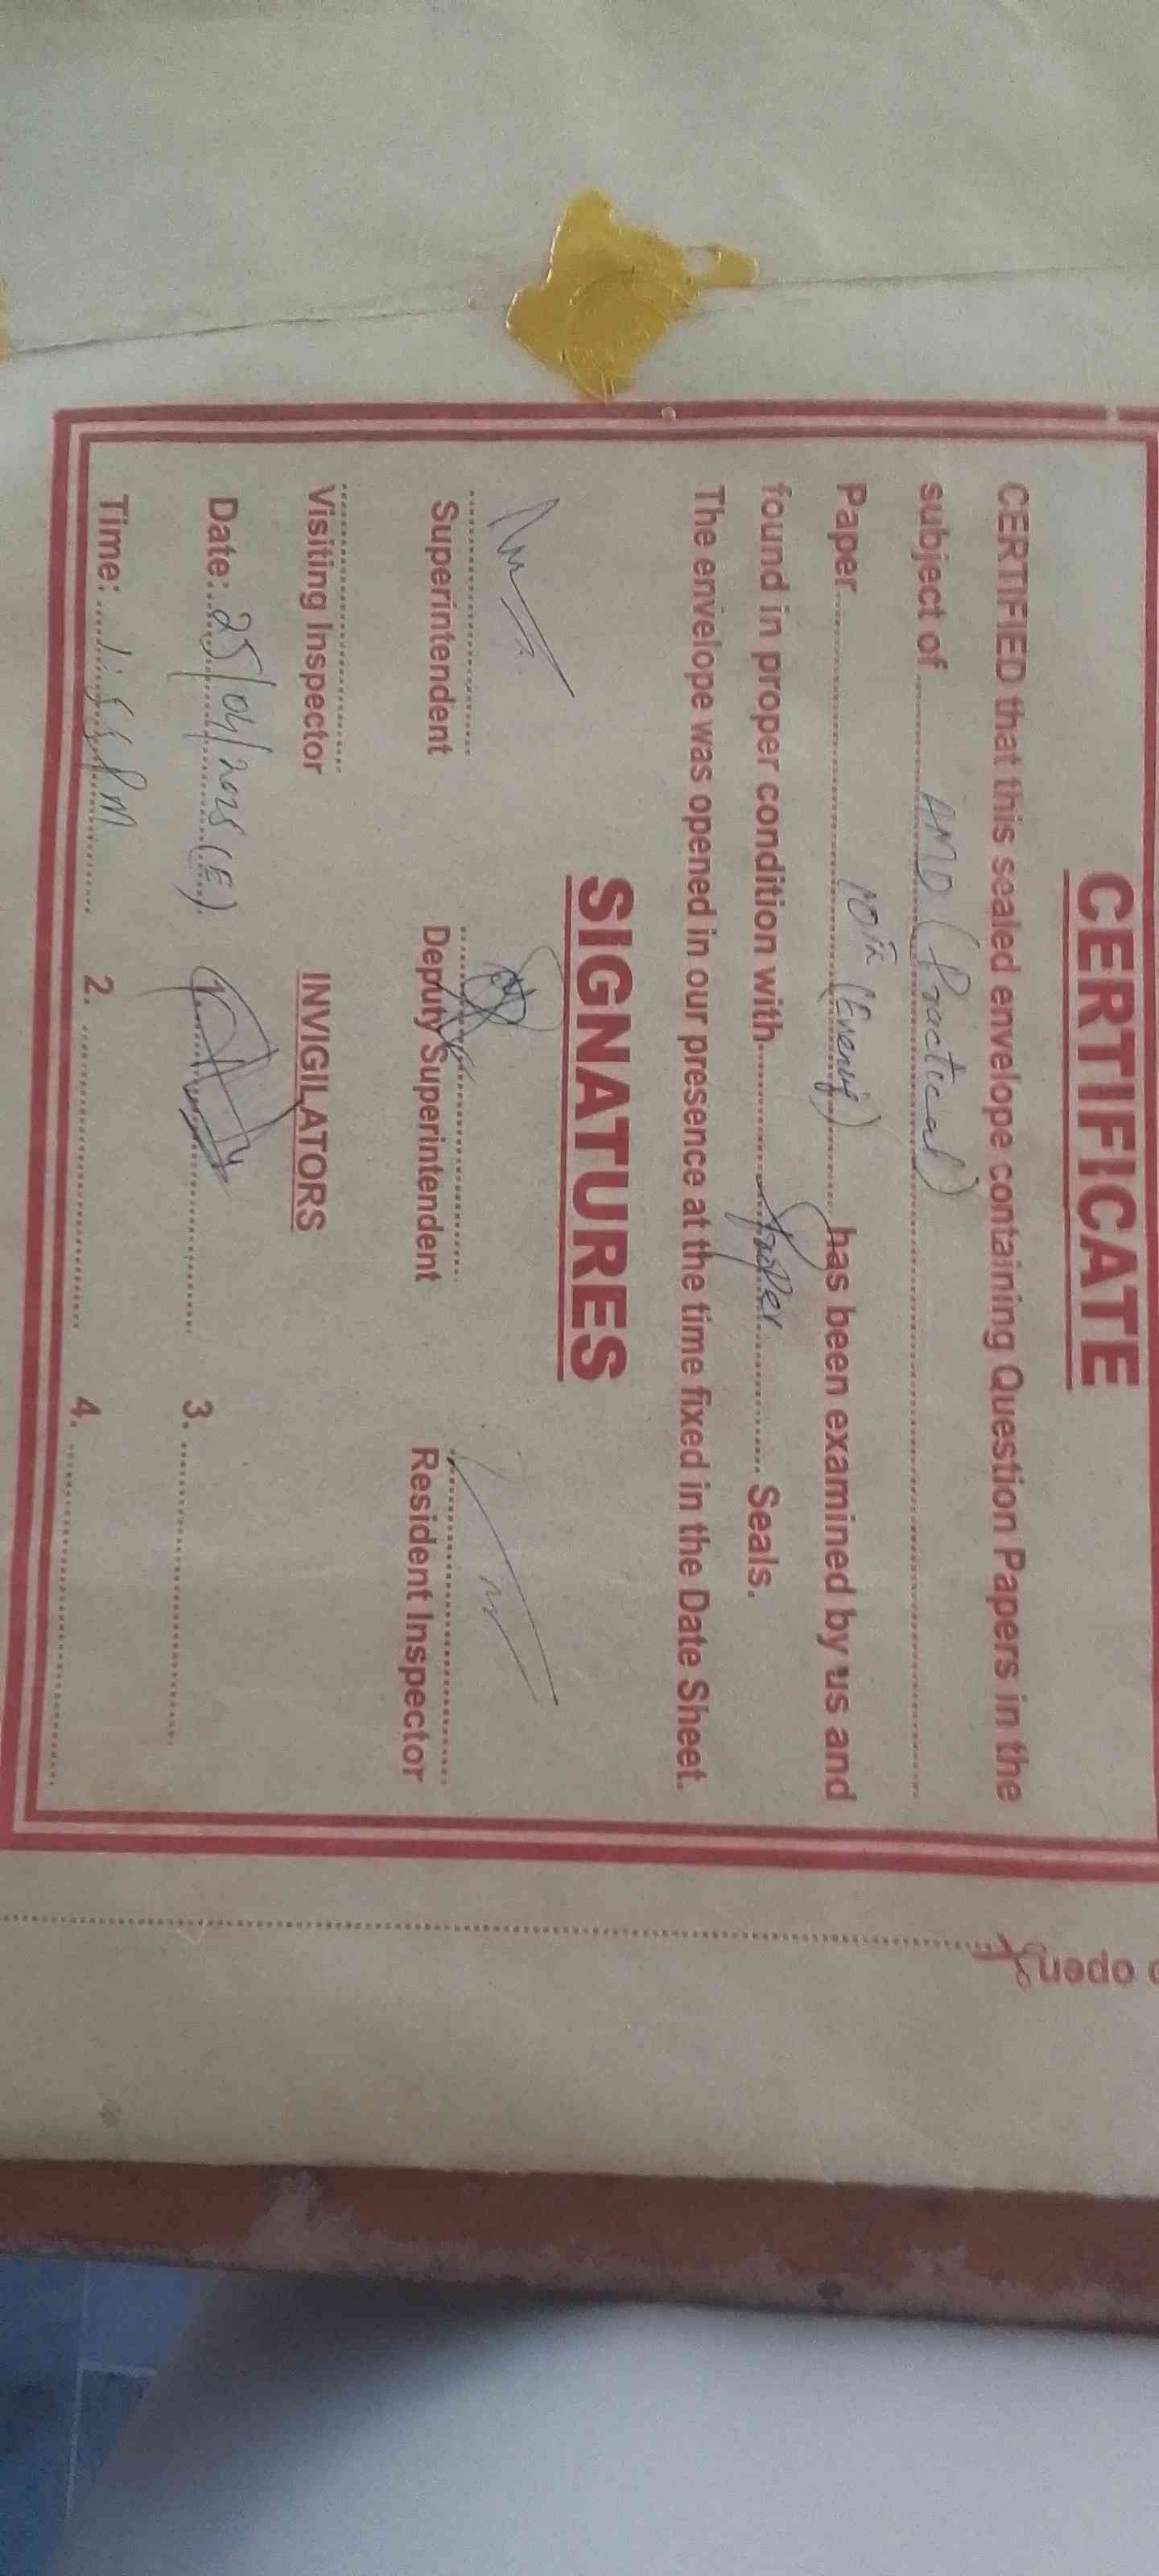 CERTIFICATE
CERTIFIED that this sealed envelope containing Question Papers in the
subject of AMD (Practical)
Paper 10th (Evening) has been examined by us and
found in proper condition with Seals.
The envelope was opened in our presence at the time fixed in the Date Sheet.
SIGNATURES
Superintendent Deputy Superintendent Resident Inspector
Visiting Inspector INVIGILATORS
Date: 25/04/2025 (E). 1. 3.
Time: PM 2. 4.
open